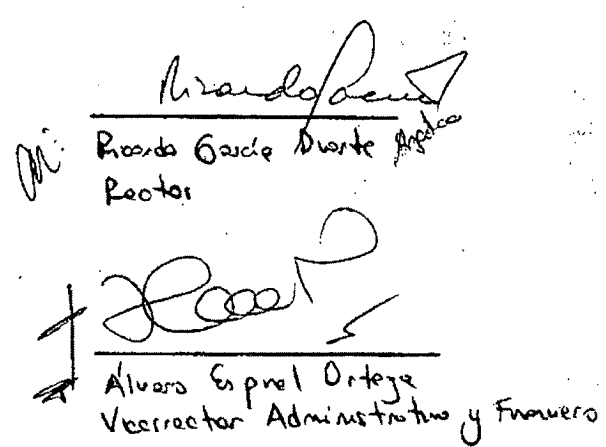 Ricardo García Duarte
Rector
Álvaro Espinel Ortega
Vicerrector Administrativo y Financiero